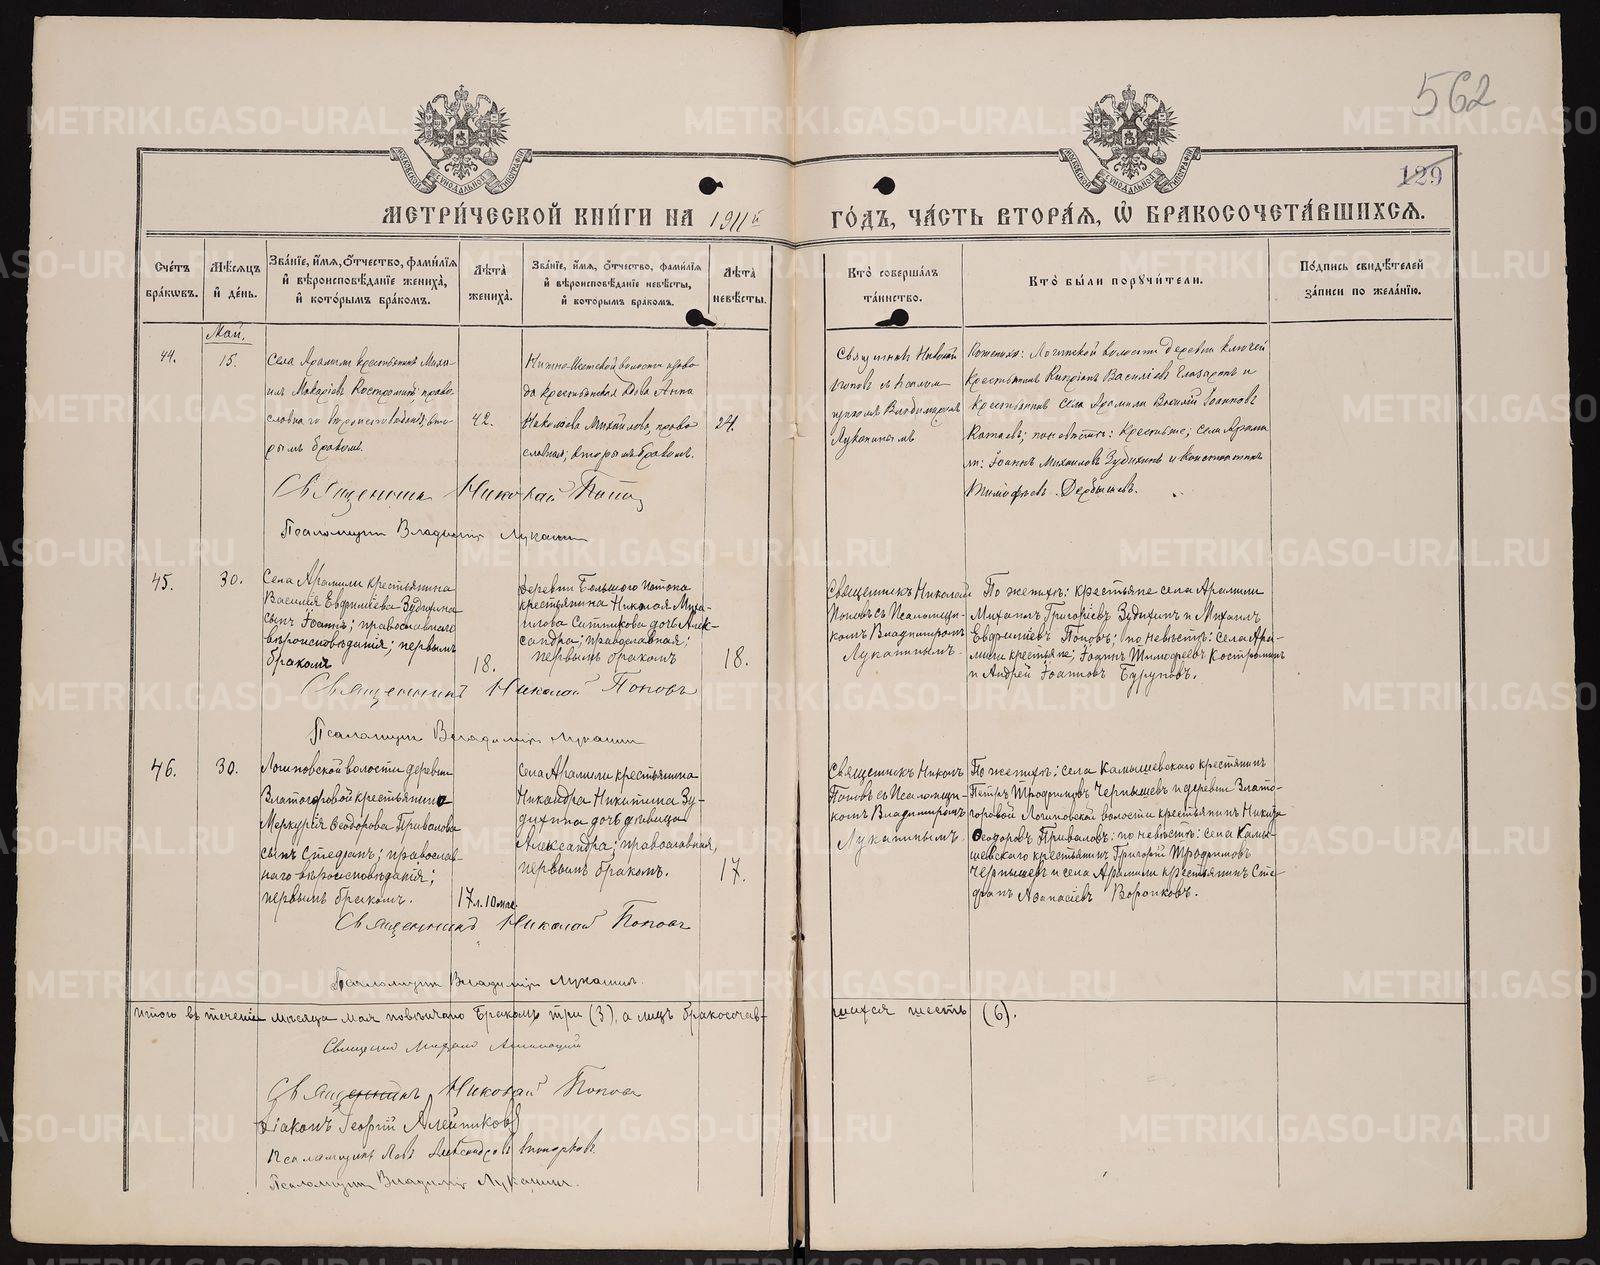 562
129
МЕТРИ́ЧЕСКОЙ КНИ́ГИ НА 1911й ГО́ДЪ, ЧА́СТЬ ВТОРА́Я, Ѿ БРАКОСОЧЕТА́ВШИХСЯ.
Сче́тъ бра́кωвъ.
Мѣ́сяцъ и҆ де́нь.
Зва́нїе, и҆́мя, ѻ҆́тчество, фами́лїя и҆ вѣроисповѣ́данїе жениха̀, и҆ кото́рымъ бра́комъ.
Лѣ́та жениха̀.
Зва́нїе, и҆́мя, ѻ҆́тчество, фами́лїя и҆ вѣроисповѣ́данїе невѣ́сты, и҆ кото́рымъ бракомъ.
Лѣ́та невѣ́сты.
Кто̀ соверша́лъ та́инство.
Кто̀ бы́ли поручи́тели.
По́дпись свидѣ́телей за́писи по жела́нїю.
Май,
44.
15.
Села Арамили крестьянинъ Миха-
илъ Макаріевъ Костроминъ, право-
славнаго вѣроисповѣданія, вто-
рымъ бракомъ.
42.
волости
да крестьянская дѣва Анна
Николаева Михайлова, право-
славная; вторымъ бракомъ.
24.
Священникъ Николай
Поповъ съ псалом-
щикомъ Владимиромъ
Лукапинымъ
По женихѣ: Логиновской волости деревни Ключей
крестьянинъ Кипріанъ Василіевъ и
крестьянинъ села Арамили Василій Іоанновъ
по невѣстѣ: крестьяне; села Арами-
ли: Іоаннъ Михаиловъ Зудихинъ и Константинъ
Тимофѣевъ
Священникъ Николай Попов
Псаломщик Владимір Лукапин
45.
30.
Села Арамили крестьянина
Василія Евфиміева Зудихина
сынъ Іоаннъ; православнаго
вѣроисповѣданія; первымъ
бракомъ
18.
Деревни Большого Истока
крестьянина Николая Миха-
илова Ситникова дочь Алек-
сандра; православная;
первымъ бракомъ
18.
Священникъ Николай
Поповъ съ Псаломщи-
комъ Владимиромъ
Лукапинымъ
По женихѣ: крестьяне села Арамили
Михаилъ Григоріевъ Зудихинъ и Михаилъ
Евфиміевъ Поповъ; по невѣстѣ: села Ара-
мили крестьяне; Іоаннъ Тимофеевъ Костроминъ
и Андрей Іоанновъ Буруновъ.
Священникъ Николай Поповъ
Псаломщик Владимір Лукапин
46.
30.
Логиновской волости деревни
Златогоровой крестьянина
Меркурія Ѳеодорова Привалова
сынъ Стефанъ; православ-
наго вѣроисповѣданія;
первымъ бракомъ.
17 л. 10 мес.
Села Арамили крестьянина
Никандра Никитина Зу-
дихина дочь дѣвица
Александра; православная,
первымъ бракомъ.
17.
Священникъ Никол.
Поповъ съ Псаломщи-
комъ Владимиромъ
Лукапинымъ
По женихѣ: села Камышевскаго крестянинъ
Петръ Трофимовъ Чернышевъ и деревни Злато-
горовой Логиновской волости крестьянинъ Никита
Ѳеодоровъ Приваловъ: по невѣстѣ: села Камы-
шевскаго крестьянинъ Григорій Трофимовъ
Чернышевъ и села Арамили крестьянинъ Сте-
фанъ Аѳанасіевъ Воронковъ.
Священникъ Николай Поповъ
Псаломщик Владимір Лукапин.
Итого въ теченіи мѣсяца мая повѣнчано браковъ три (3), а лицъ бракосочетав-
шихся шесть (6).
Священник
Священникъ Николай Попов
Діаконъ Георгій Алейниковъ
Псаломщикъ
Псаломщик Владимір Лукапин.